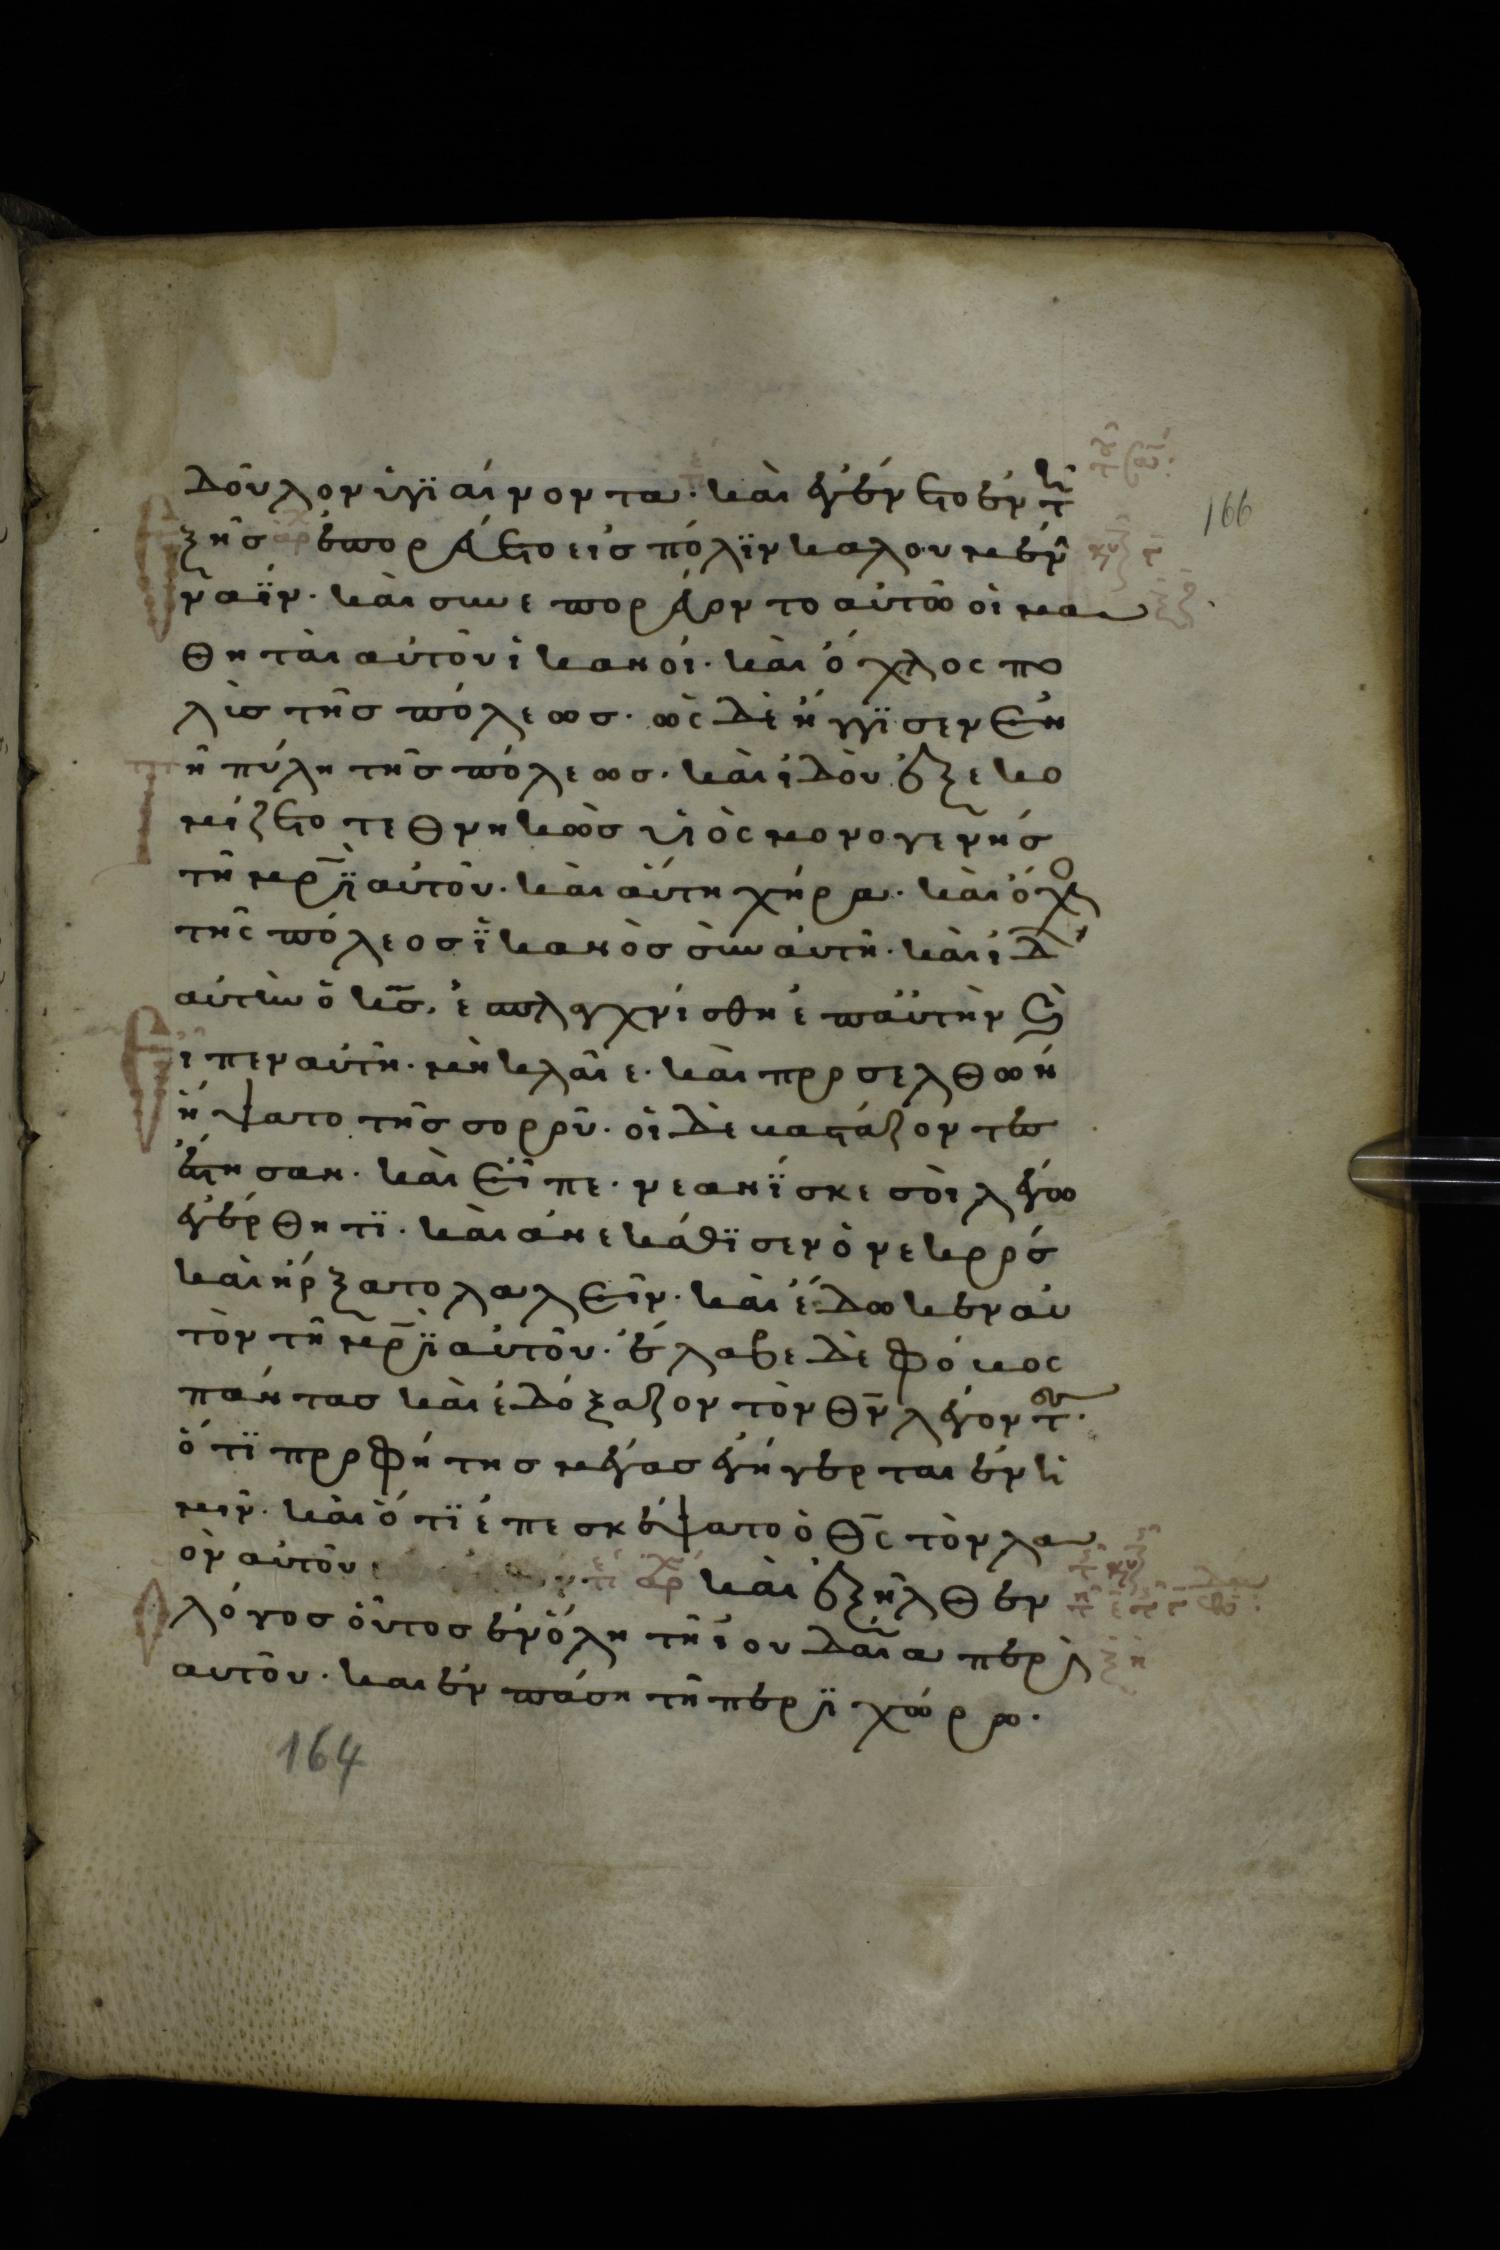 δοῦλον ὑγϊαίνοντα· καὶ ἐγένετο ἐν τῆ
ξῆς ἐπορεύετο εἰς πόλϊν καλουμέν
ναΐν· καὶ συνεπορεύοντο αὐτῶ οἱ μα
θηταὶ αὐτοῦ ἱκανοί· καὶ ὄχλος πο
λὺς τῆς πόλεως· ὡς δὲ ἤγγϊσεν ἐν
ῆ πύλη τῆς πόλεως· καὶ ἰδοὺ ἐξεκο
μίζετο τεθνηκὼς υἱὸς μονογεννής
τῆ μρῒ αὐτοῦ· καὶ αὕτη χήρα· καὶ ὄχλο
τῆς πόλεος ϊκανὸς σὺν αὐτῆ· καὶ ἰδ
αὐτὴν ὁ κς̅, ἐσπλαγχνίσθη ἐπ αὐτὴν (καὶ)
εἶπεν αὐτῆ· μὴ κλαῖε· καὶ προσελθων
ἥψατο τῆς σοροῦ· οἱ δὲ βαστάζοντες
ἔστησαν· καὶ εἶπε· νεανΐσκε σοὶ λέγω
ἐγέρθητϊ· καὶ ἀνεκάθϊσεν ὁ νεκρός
καὶ ἤρξατο λαλεῖν· καὶ ἔδωκεν αὐ
τὸν τῆ μρῒ αὐτοῦ· ἔλαβε δὲ φόβος
πάντας καὶ ἐδόξαζον τὸν θν̅ λέγοντ·
ὅτϊ προφήτης μέγας ἐγήγερται ἐν ἡ
μῖν· καὶ ὅτϊ ἐπεσκέψατο ὁ θς̅ τὸν λα
ὸν αὐτοῦ καὶ ἐξῆλθεν
λόγος οὗτος ἐν ὅλη τῆ ἰουδαία περὶ
αυτοῦ· και ἐν πάση τῆ περϊχώρω·
166
164